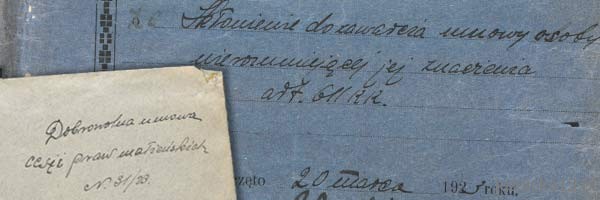 Skłonienie do zawarcia umowy osoby
nierozumiejącej jej znaczenia
art. 611 K.K.
Dobrowolna umowa
cesji praw małżeńskich
N. 31/23.
rzęto 20 marca 192 roku.